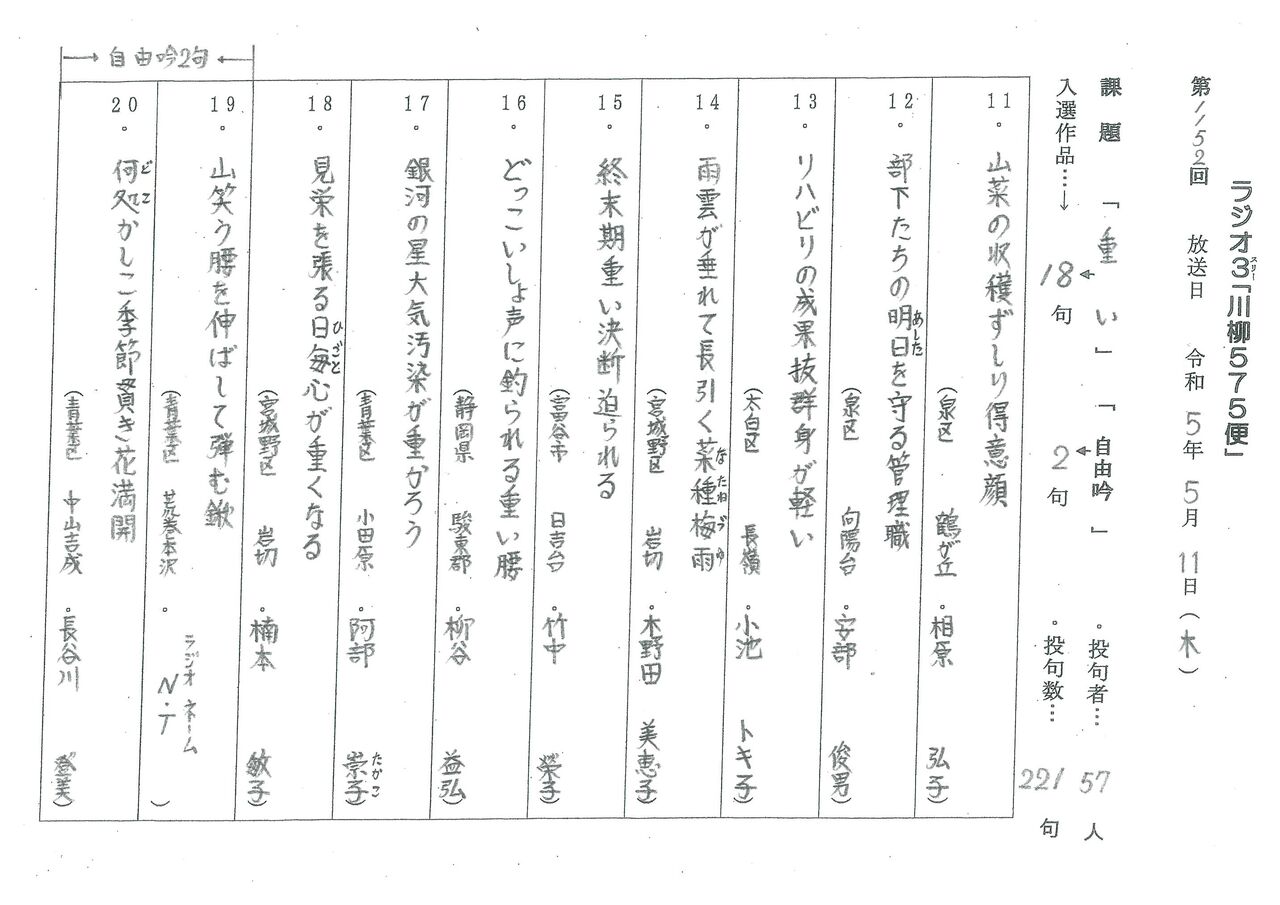 ラジオ3「川柳575便」
スリー
第1152回 放送日 令和5年5月11日(木)
課題「重い」「自由吟」 。投句者…57人
入選作品…→ 18句 2句 。投句数…221句
11。山菜の収穫ずしり得意顔
(泉区 鶴が丘 。相原 弘子)
12。部下たちの明日を守る管理職
あした
(泉区 向陽台 。安部 俊男)
13。リハビリの成果抜群身が軽い
(太白区 長嶺 。小池 トキ子)
14。雨雲が垂れて長引く菜種梅雨
なたねづゆ
(宮城野区 岩切 。木野田 美恵子)
15。終末期重い決断迫られる
(富谷市 日吉台 。竹中 榮子)
16。どっこいしょ声に釣られる重い腰
(静岡県 駿東郡 。柳谷 益弘)
17。銀河の星大気汚染が重かろう
(青葉区 小田原 。阿部 崇子)
たかこ
18。見栄を張る日毎心が重くなる
ひごと
(宮城野区 岩切 。楠本 敏子)
←自由吟2句→
19。山笑う腰を伸ばして弾む鍬
(青葉区 荒巻本沢 。ラジオネーム N・T)
20。何処かしこ季節貫き花満開
どこ
(青葉区 中山吉成 。長谷川 登美)